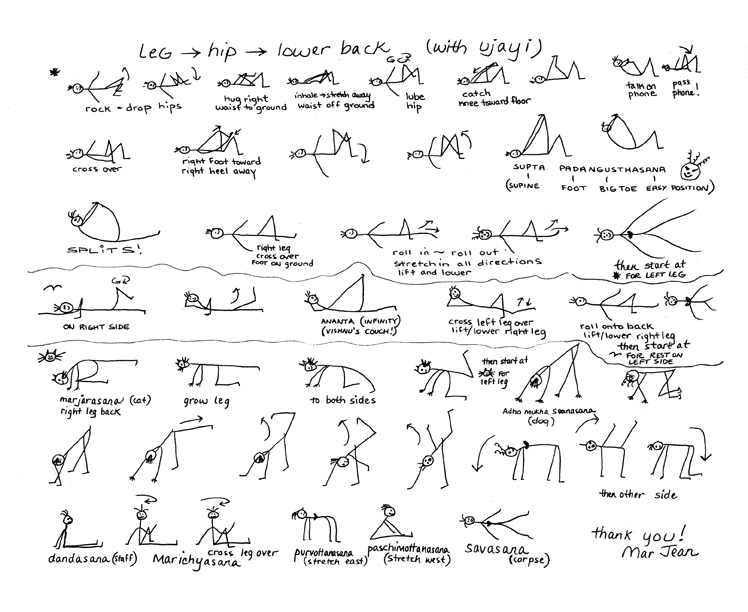 LEG → hip → lower back (with ujayi)
rock - drop hips
hug right
waist to ground
inhale → stretch away
waist off ground
lube
hip
catch
knee toward floor
talk on
phone
pass
phone!
cross over
right foot toward
right heel away
SUPTA PADANGUSTHASANA
(SUPINE FOOT BIG TOE EASY POSITION)
SPLITS!
right leg
cross over
foot on ground
roll in ~ roll out
stretch in all directions
lift and lower
then start at
* FOR LEFT LEG
ON RIGHT SIDE
ANANTA (INFINITY)
(VISHNU'S COUCH!)
cross left leg over
lift/lower right leg
roll onto back
lift/lower right leg
then start at
FOR REST ON
LEFT SIDE
marjarasana (cat)
right leg back
grow leg
to both sides
then start at
for
left leg
Adho Mukha Svanasana
(dog)
then other side
dandasana (staff)
Marichyasana
cross leg over
purvottanasana
(stretch east)
paschimottanasana
(stretch west)
savasana
(corpse)
thank you!
Mar Jean